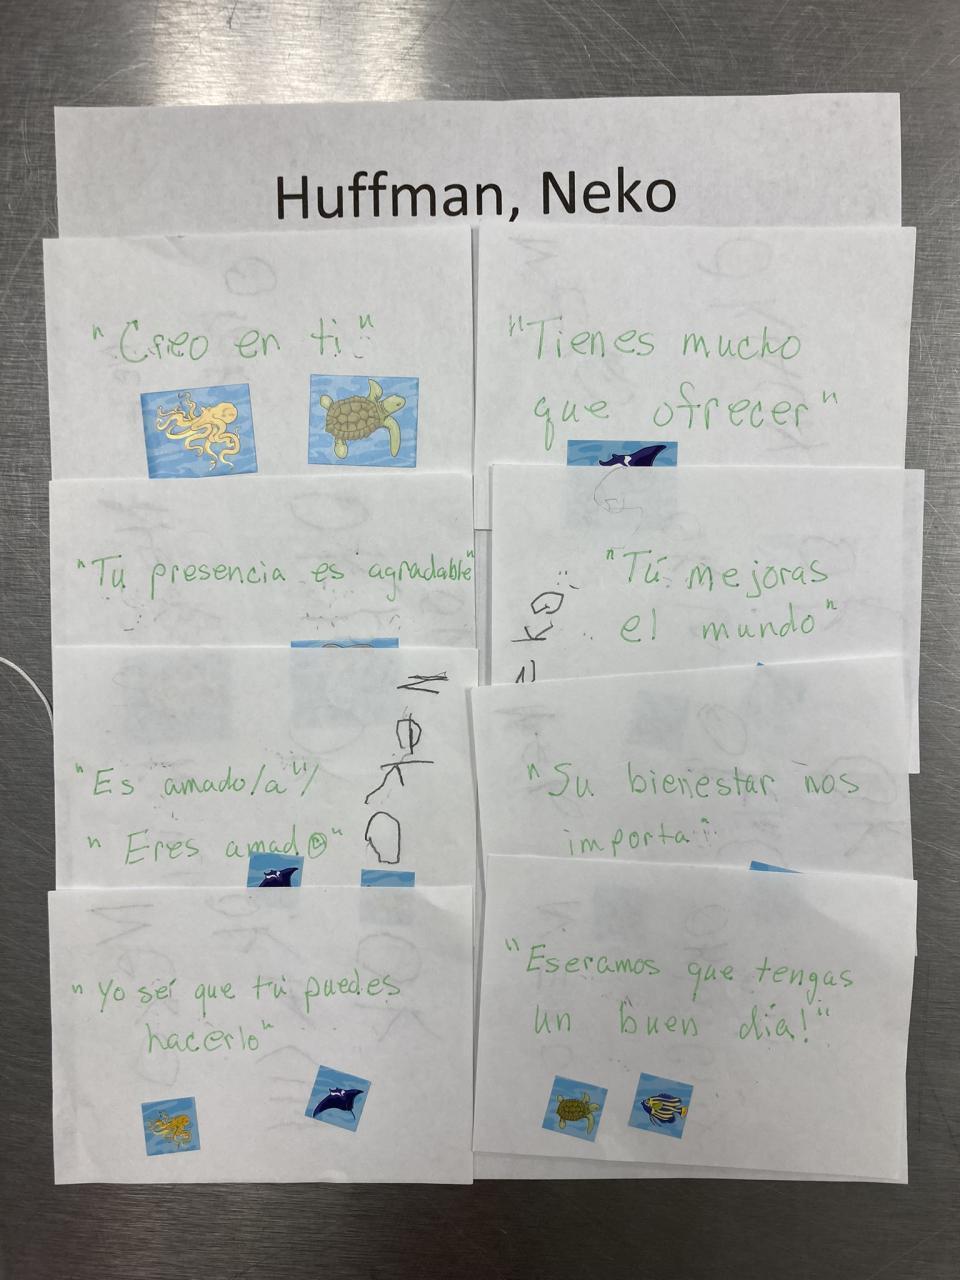 Huffman, Neko
"Creo en ti"
"Tienes mucho
que ofrecer"
"Tu presencia es agradable"
"Tú mejoras
el mundo"
"Es amado/a"/
"Eres amad@"
Neko
"Su bienestar nos
importa"
"Yo seí que tú puedes
hacerlo"
"Eseramos que tengas
un buen día!"